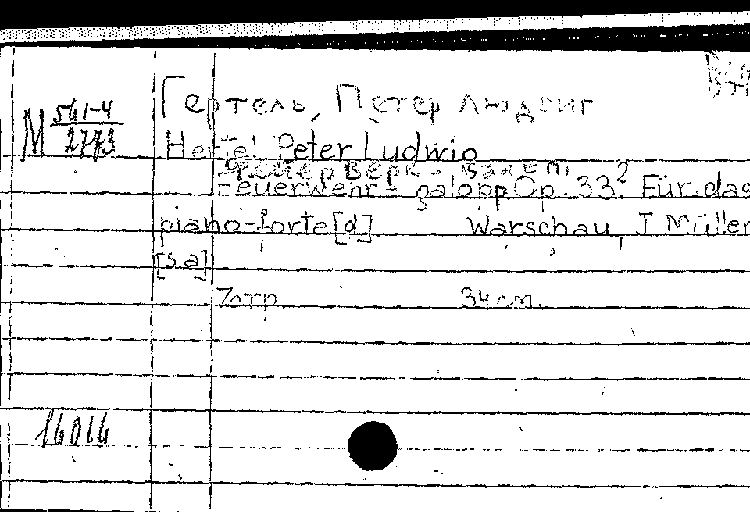 М 561-4
2773
Гертель, Петер Людвиг
Hertel Peter Ludwig
Feuerwehr-galopp Op. 33. Für das
piano-forte [d] Warschau, I Müller
[s.a]
7 стр 34 см.
16016